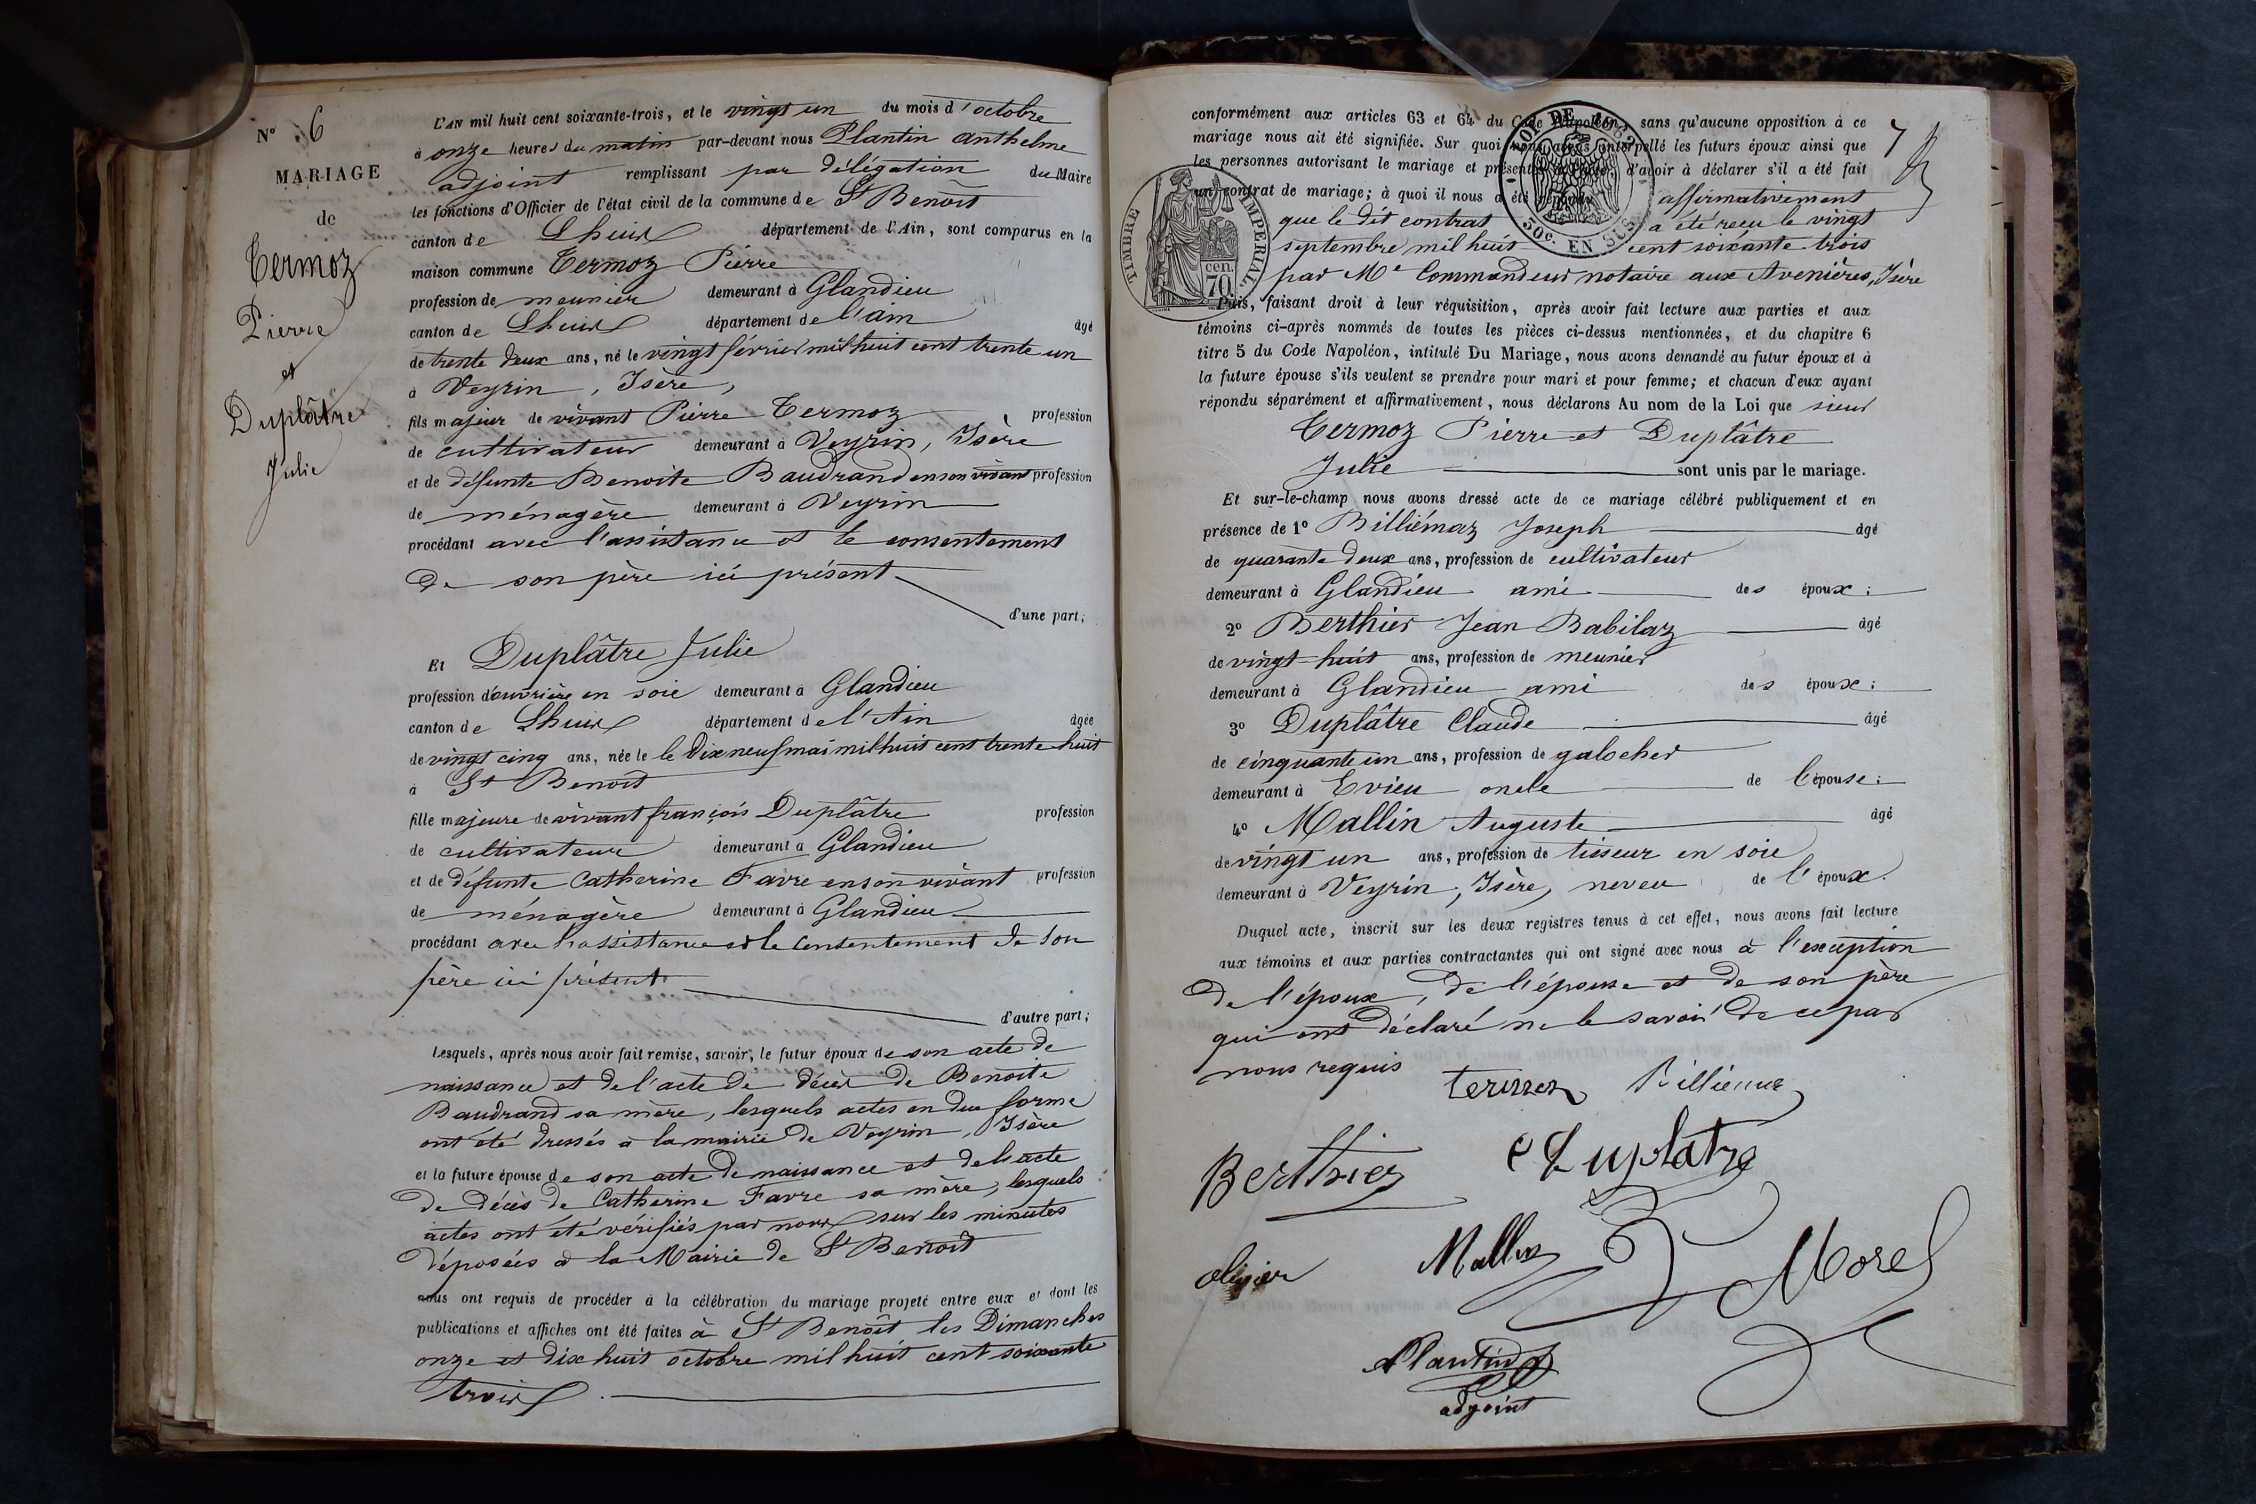 N° 6
MARIAGE
de
Termoz
Pierre
et
Duplâtre
Julie
L'AN mil huit cent soixante-trois, et le vingt un du mois d'octobre
à onze heures du matin par-devant nous Plantin Anthelme
adjoint remplissant par délégation du Maire
les fonctions d'Officier de l'état civil de la commune de St Benoit
canton de Lhuis département de l'Ain, sont comparus en la
maison commune Termoz Pierre
profession de meunier demeurant à Glandieu
canton de Lhuis département de l'ain âgé
de trente deux ans, né le vingt février mil huit cent trente un
à Veyrin, Isère,
fils majeur de vivant Pierre Termoz profession
de cultivateur demeurant à Veyrin, Isère
et de défunte Benoite Baudrand en son vivant profession
de ménagère demeurant à Veyrin
procédant avec l'assistance et le consentement
de son père ici présent
d'une part;
Et Duplâtre Julie
profession d'ouvrière en soie demeurant à Glandieu
canton de Lhuis département de l'Ain âgée
de vingt cinq ans, née le le dix neuf mai mil huit cent trente huit
à St Benoit
fille majeure de vivant françois Duplâtre profession
de cultivateur demeurant à Glandieu
et de défunte Catherine Favre en son vivant profession
de ménagère demeurant à Glandieu
procédant avec l'assistance et le consentement de son
père ici présent
d'autre part;
Lesquels, après nous avoir fait remise, savoir, le futur époux de son acte de
naissance et de l'acte de décès de Benoite
Baudrand sa mère, lesquels actes en due forme
ont été dressés à la mairie de Veyrin, Isère
et la future épouse de son acte de naissance et de l'acte
de décès de Catherine Favre sa mère, lesquels
actes ont été vérifiés par nous sur les minutes
déposées à la Mairie de St Benoit
nous ont requis de procéder à la célébration du mariage projeté entre eux et dont les
publications et affiches ont été faites à St Benoît les Dimanches
onze et dix huit octobre mil huit cent soixante
trois
conformément aux articles 63 et 64 du Code Napoléon, sans qu'aucune opposition à ce
mariage nous ait été signifiée. Sur quoi nous avons interpellé les futurs époux ainsi que
les personnes autorisant le mariage et présentes à l'acte, d'avoir à déclarer s'il a été fait
un contrat de mariage; à quoi il nous a été répondu affirmativement
que le dit contrat a été reçu le vingt
septembre mil huit cent soixante trois
par Me Commandeur notaire aux Avenières, Isère
7
LOI DE 1862
30c. EN SUS
TIMBRE IMPERIAL
70 cen.
Puis, faisant droit à leur réquisition, après avoir fait lecture aux parties et aux
témoins ci-après nommés de toutes les pièces ci-dessus mentionnées, et du chapitre 6
titre 5 du Code Napoléon, intitulé Du Mariage, nous avons demandé au futur époux et à
la future épouse s'ils veulent se prendre pour mari et pour femme; et chacun d'eux ayant
répondu séparément et affirmativement, nous déclarons Au nom de la Loi que sieur
Termoz Pierre et Duplâtre
Julie sont unis par le mariage.
Et sur-le-champ nous avons dressé acte de ce mariage célébré publiquement et en
présence de 1° Billiémaz Joseph âgé
de quarante deux ans, profession de cultivateur
demeurant à Glandieu ami des époux;
2° Berthier Jean Babilaz âgé
de vingt-huit ans, profession de meunier
demeurant à Glandieu ami des époux;
3° Duplâtre Claude âgé
de cinquante un ans, profession de galocher
demeurant à Evieu oncle de l'épouse;
4° Mallin Auguste âgé
de vingt un ans, profession de tisseur en soie
demeurant à Veyrin, Isère, neveu de l'époux.
Duquel acte, inscrit sur les deux registres tenus à cet effet, nous avons fait lecture
aux témoins et aux parties contractantes qui ont signé avec nous à l'exception
de l'époux, de l'épouse et de son père
qui ont déclaré ne le savoir de ce par
nous requis
Billiemaz
Berthier
Duplatre
Mallin
Morel
Plantin
adjoint